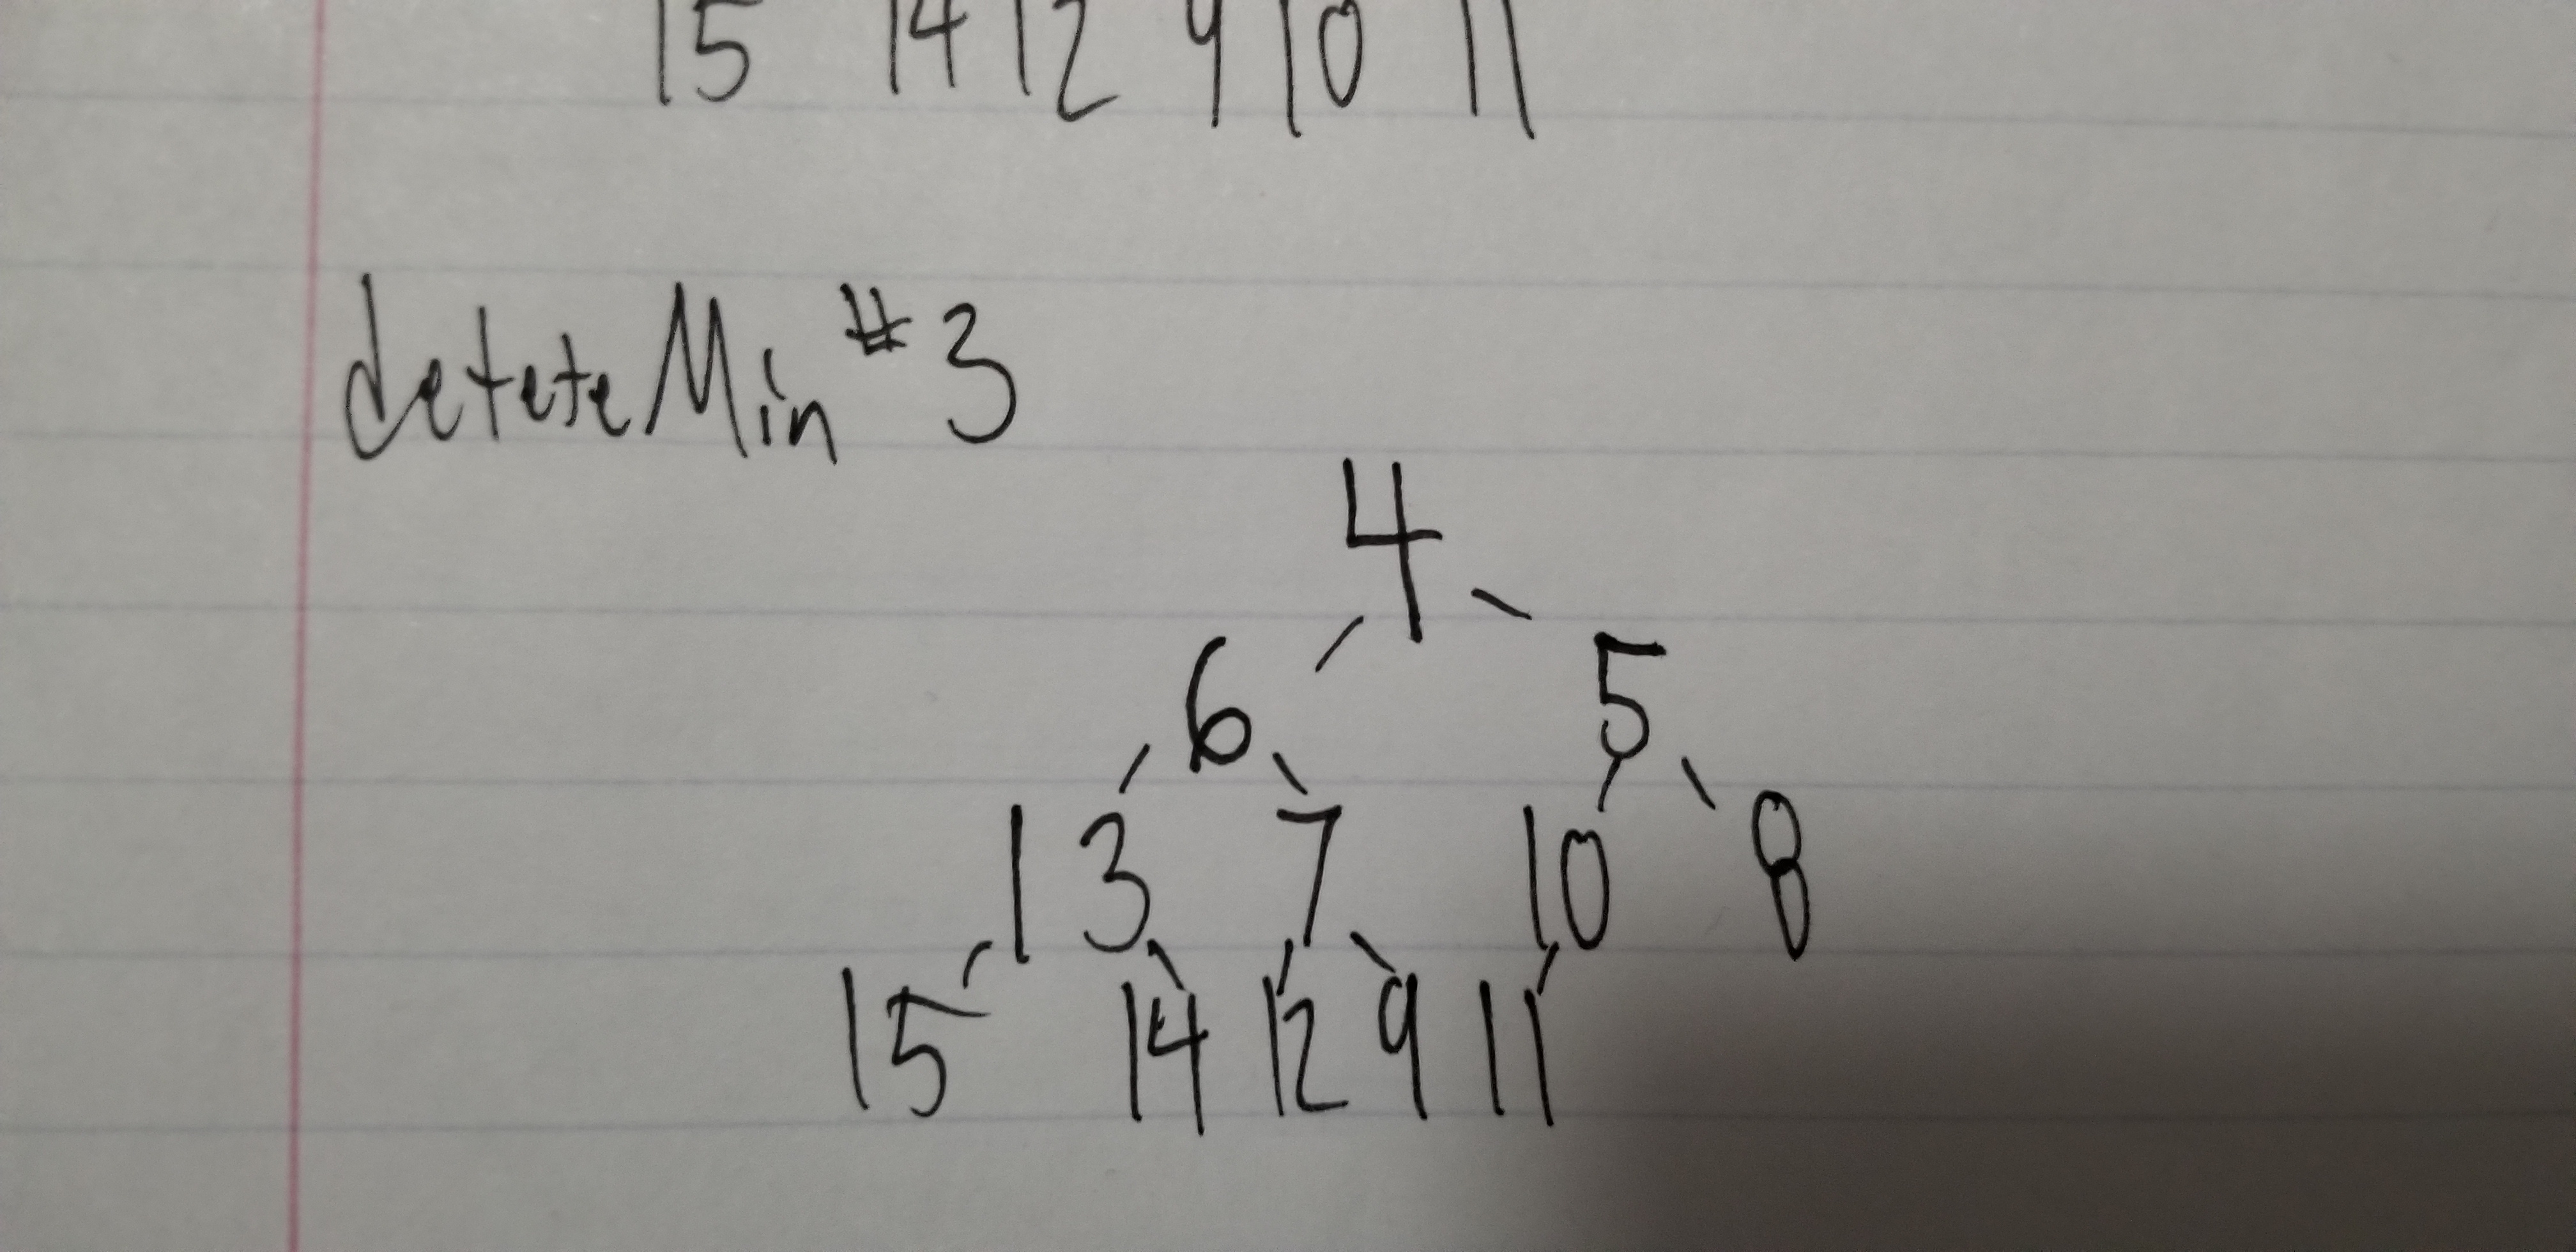 15 14 12 9 10 11
deleteMin #3
4
6 5
13 7 10 8
15 14 12 9 11